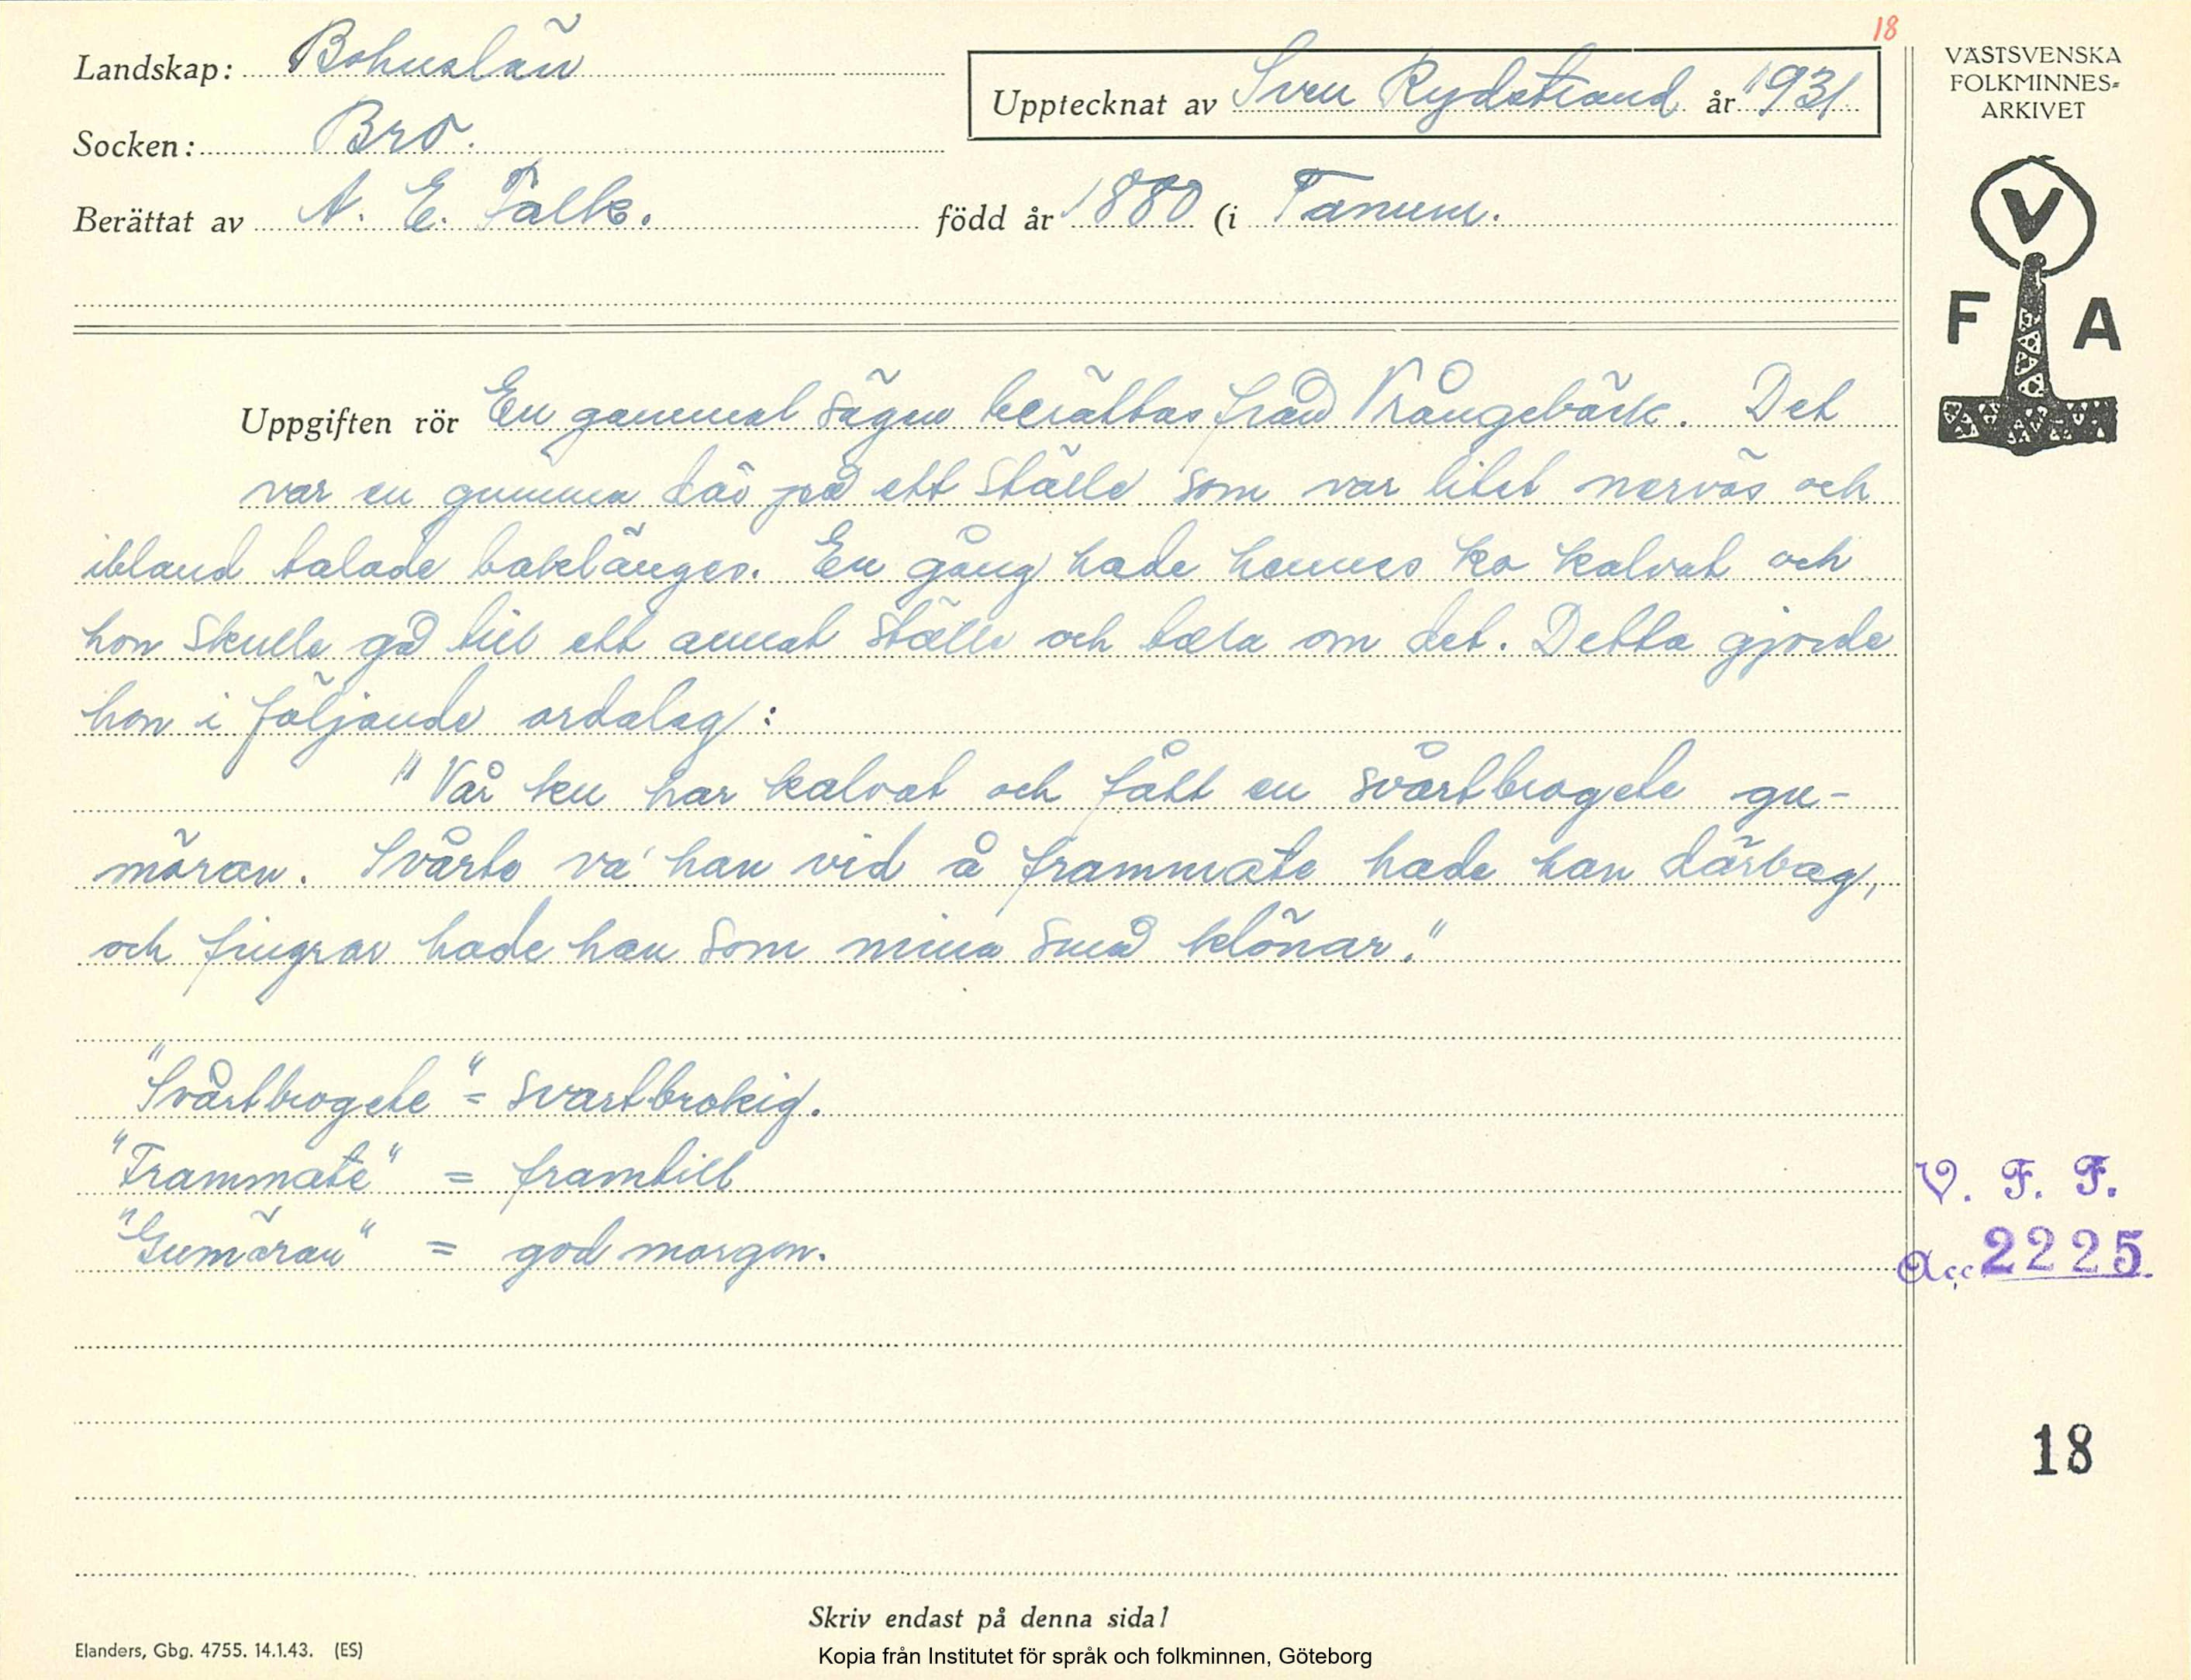 18
Landskap: Bohuslän
Upptecknat av Sven Rydstrand år 1931
VÄSTSVENSKA
FOLKMINNES=
ARKIVET
Socken: Bro.
Berättat av A. E. Falk. född år 1880 (i Tanum.
V
F A
Uppgiften rör En gammal sägen berättas från Vrångebäck. Det
var en gumma där på ett ställe som var litet nervös och
ibland talade baklänges. En gång hade hennes ko kalvat och
hon skulle gå till ett annat ställe och tala om det. Detta gjorde
hon i följande ordalag:
"Vår ku har kalvat och fått en svårtbrogete gu-
märan. Svårte va' han vid å frammate hade han därbag,
och fingrar hade han som mina små klönar."
"Svårtbrogete" = svartbrokig.
"Frammate" = framtill
"Gumäran" = god morgon.
V. F. F.
Acc. 2225
18
Skriv endast på denna sida!
Elanders, Gbg. 4755. 14.1.43. (ES)
Kopia från Institutet för språk och folkminnen, Göteborg